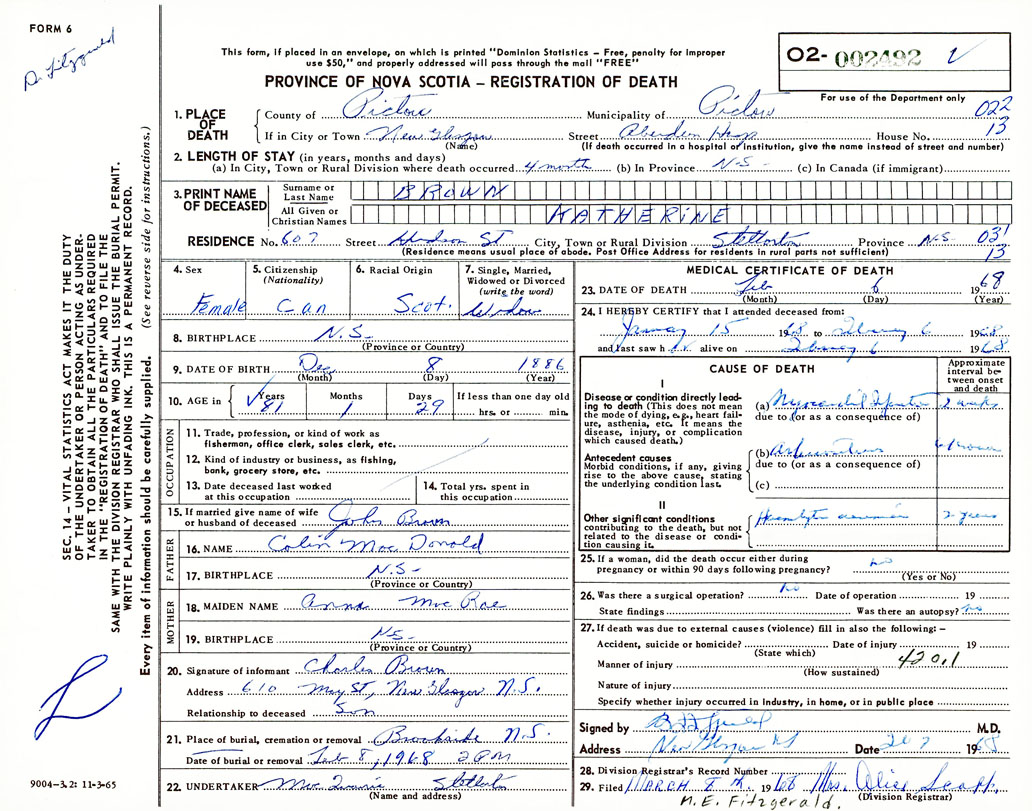 FORM 6
D. Fitzgerald
This form, if placed in an envelope, on which is printed "Dominion Statistics – Free, penalty for improper
use $50," and properly addressed will pass through the mail "FREE"
PROVINCE OF NOVA SCOTIA – REGISTRATION OF DEATH
02- 002492
For use of the Department only
022
13
1. PLACE OF DEATH
County of Pictou Municipality of Pictou
If in City or Town New Glasgow Street Aberdeen Hosp House No.
(Name) (If death occurred in a hospital or institution, give the name instead of street and number)
2. LENGTH OF STAY (in years, months and days)
(a) In City, Town or Rural Division where death occurred 4 month (b) In Province N.S- (c) In Canada (if immigrant)
3. PRINT NAME OF DECEASED
Surname or Last Name BROWN
All Given or Christian Names KATHERINE
RESIDENCE No. 607 Street Hudson St City, Town or Rural Division Stellarton Province N.S- 031
13
(Residence means usual place of abode. Post Office Address for residents in rural parts not sufficient)
4. Sex
Female
5. Citizenship
(Nationality)
Can
6. Racial Origin
Scot.
7. Single, Married,
Widowed or Divorced
(write the word)
Widow
8. BIRTHPLACE N.S-
(Province or Country)
9. DATE OF BIRTH Dec 8 1886
(Month) (Day) (Year)
10. AGE in Years Months Days If less than one day old
81 1 29 hrs. or min.
OCCUPATION
11. Trade, profession, or kind of work as
fisherman, office clerk, sales clerk, etc.
12. Kind of industry or business, as fishing,
bank, grocery store, etc.
13. Date deceased last worked
at this occupation
14. Total yrs. spent in
this occupation
15. If married give name of wife
or husband of deceased John Brown
FATHER
16. NAME Colin MacDonald
17. BIRTHPLACE N.S-
(Province or Country)
MOTHER
18. MAIDEN NAME Anna MacRae
19. BIRTHPLACE N.S-
(Province or Country)
20. Signature of informant Charles Brown
Address 610 May St, New Glasgow N.S.
Relationship to deceased Son
21. Place of burial, cremation or removal Brookside N.S.
Date of burial or removal Feb 8, 1968 2 PM
22. UNDERTAKER Stellarton
(Name and address)
MEDICAL CERTIFICATE OF DEATH
23. DATE OF DEATH Feb 6 1968
(Month) (Day) (Year)
24. I HEREBY CERTIFY that I attended deceased from:
15 1968 to 6 1968
and last saw h alive on 6 1968
CAUSE OF DEATH
Approximate
interval be-
tween onset
and death
I
Disease or condition directly lead-
ing to death (This does not
mean the mode of dying, e.g., heart fail-
ure, asthenia, etc. It means the
disease, injury, or complication
which caused death.)
(a) Myocardial Infarction 2 weeks
due to (or as a consequence of)
Antecedent causes
Morbid conditions, if any, giving
rise to the above cause, stating
the underlying condition last.
(b)
due to (or as a consequence of)
(c)
II
Other significant conditions
contributing to the death, but not
related to the disease or condi-
tion causing it. 2 years
25. If a woman, did the death occur either during
pregnancy or within 90 days following pregnancy? no
(Yes or No)
26. Was there a surgical operation? no Date of operation 19
State findings Was there an autopsy? no
27. If death was due to external causes (violence) fill in also the following: –
Accident, suicide or homicide? Date of injury 19
(State which)
Manner of injury 420.1
(How sustained)
Nature of injury
Specify whether injury occurred in industry, in home, or in public place
Signed by M.D.
Address New Glasgow NS Date 1968
28. Division Registrar's Record Number
29. Filed MARCH 1968 Mrs. Alice
(Division Registrar)
M.E. Fitzgerald.
SEC. 14 – VITAL STATISTICS ACT MAKES IT THE DUTY
OF THE UNDERTAKER OR PERSON ACTING AS UNDER-
TAKER TO OBTAIN ALL THE PARTICULARS REQUIRED
IN THE "REGISTRATION OF DEATH" AND TO FILE THE
SAME WITH THE DIVISION REGISTRAR WHO SHALL ISSUE THE BURIAL PERMIT.
WRITE PLAINLY WITH UNFADING INK. THIS IS A PERMANENT RECORD.
Every item of information should be carefully supplied. (See reverse side for instructions.)
9004–3.2: 11-3-65